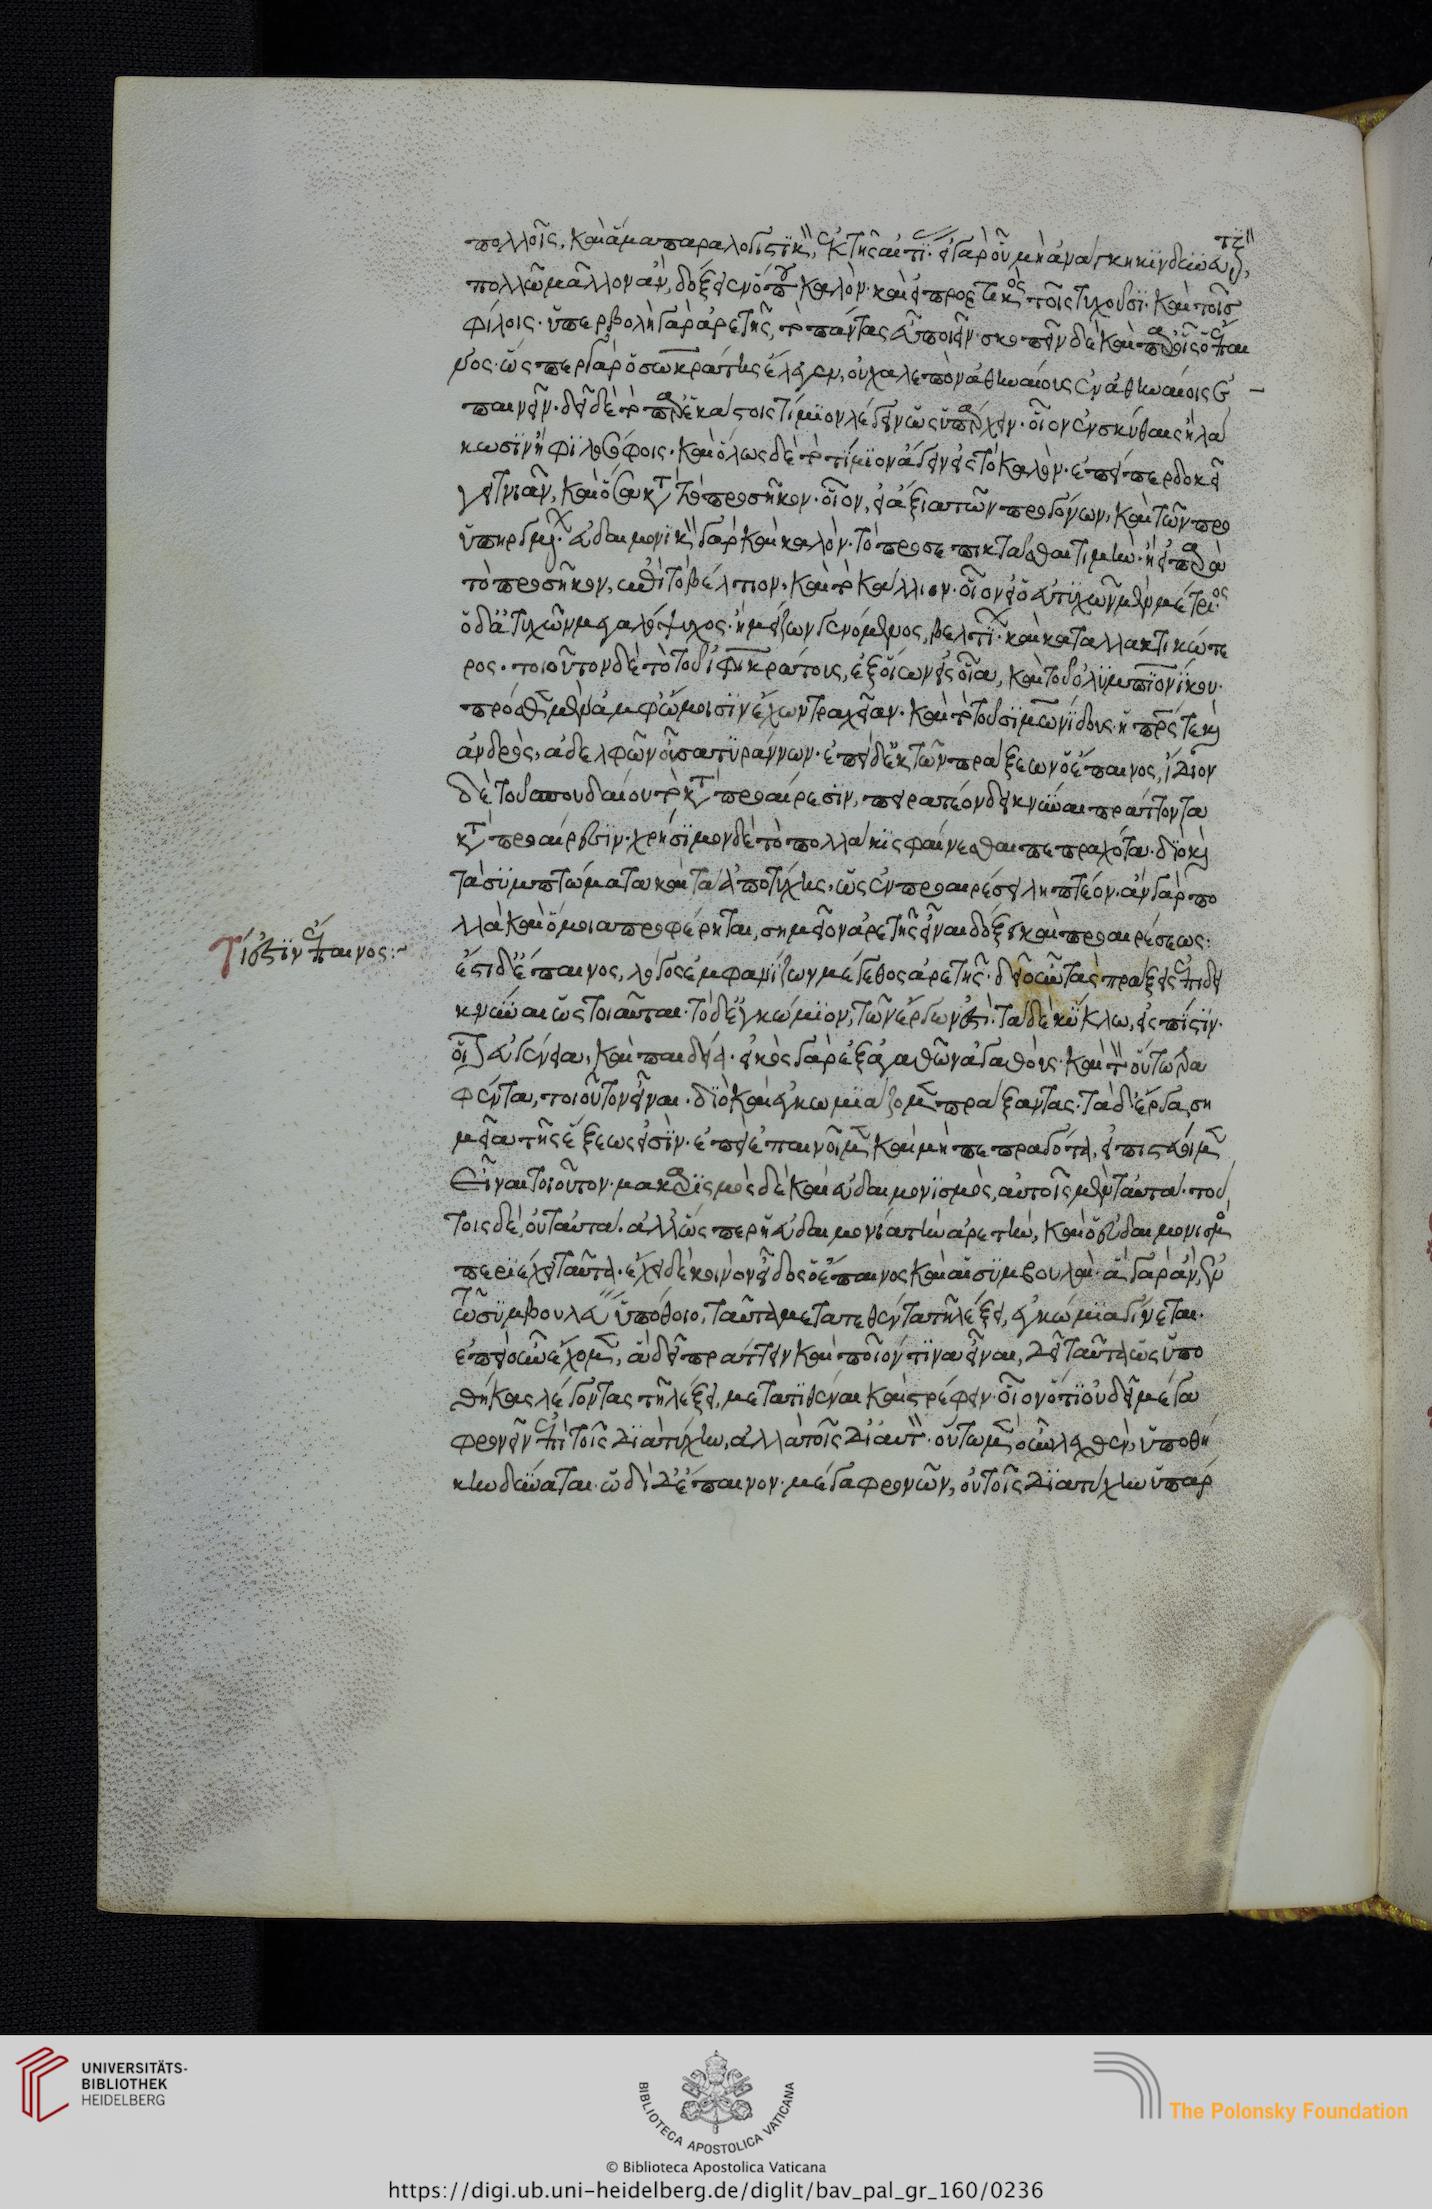 πολλοῖς, καὶ ἅμα παραλογιστικὸν ἐκ τῆς αἰτίας· εἰ γὰρ οὗ μὴ ἀνάγκη κινδυνευτικὸς,
πολλῷ μᾶλλον ἂν δόξειεν ὅπου καλόν· καὶ εἰ προετικὸς τοῖς τυχοῦσι· καὶ τοῖς
φίλοις· ὑπερβολὴ γὰρ ἀρετῆς, τὸ πάντας εὖ ποιεῖν· σκοπεῖν δὲ καὶ παρ' οἷς ὁ ἔπαι
νος· ὥσπερ γὰρ ὁ σωκράτης ἔλεγεν, οὐ χαλεπὸν ἀθηναίους ἐν ἀθηναίοις ἐ
παινεῖν· δεῖ δὲ τὸ παρ' ἑκάστοις τίμιον λέγειν ὡς ὑπάρχειν· οἷον ἐν σκύθαις ἢ λά
κωσιν ἢ φιλοσόφοις· καὶ ὅλως δὲ τὸ τίμιον ἄγειν εἰς τὸ καλὸν· ἐπείπερ δοκεῖ
γειτνιᾶν, καὶ ὅσα κατὰ τὸ προσῆκον· οἷον, εἰ ἄξια τῶν προγόνων, καὶ τῶν προ
ϋπηργμένων· εὐδαιμονικὸν γὰρ καὶ καλὸν· τὸ προσεπικτᾶσθαι τιμήν· ἢ εἰ παρὰ
τὸ προσῆκον, ἐπὶ τὸ βέλτιον, καὶ τὸ κάλλιον· οἷον εἰ εὐτυχῶν μὲν μέτριος·
ὁ δ' ἀτυχῶν μεγαλόψυχος· ἢ μείζων γενόμενος, βελτίων καὶ καταλλακτικώτε
ρος· τοιοῦτον δὲ τὸ τοῦ ἰφικράτους, ἐξ οἵων εἰς οἷα, καὶ τοῦ ὀλυμπιονίκου·
πρόσθε μὲν ἀμφ' ὤμοισιν ἔχων τραχεῖαν· καὶ τὸ τοῦ σιμωνίδους· ἣ πατρός τε καὶ
ἀνδρὸς, ἀδελφῶν οὖσα τυράννων· ἐπεὶ δ' ἐκ τῶν πράξεων ὁ ἔπαινος, ἴδιον
δὲ τοῦ σπουδαίου τὸ κατὰ προαίρεσιν, πειρατέον δεικνύναι πράττοντα
κατὰ προαίρεσιν· χρήσιμον δὲ τὸ πολλάκις φαίνεσθαι πεπραχότα· διὸ καὶ
τὰ συμπτώματα καὶ τὰ ἀπὸ τύχης, ὡς ἐν προαιρέσει ληπτέον· ἂν γὰρ πο
λλὰ καὶ ὅμοια προφέρηται, σημεῖον ἀρετῆς εἶναι δόξει καὶ προαιρέσεως·
Τί ἐστιν ἔπαινος:~
ἔστι δ' ἔπαινος, λόγος ἐμφανίζων μέγεθος ἀρετῆς· δεῖ οὖν τὰς πράξεις ἐπιδει
κνύναι ὡς τοιαῦται· τὸ δ' ἐγκώμιον, τῶν ἔργων ἐστί· τὰ δὲ κύκλῳ, εἰς πίστιν·
οἷον εὐγένεια, καὶ παιδεία· εἰκὸς γὰρ ἐξ ἀγαθῶν ἀγαθούς· καὶ τὸν οὕτω τρα
φέντα, τοιοῦτον εἶναι· διὸ καὶ ἐγκωμιάζομεν πράξαντας· τὰ δ' ἔργα, ση
μεῖα τῆς ἕξεως εἰσίν· ἐπεὶ ἐπαινοῖμεν καὶ μὴ πεπραγότα, εἰ πιστεύοιμεν
εἶναι τοιοῦτον· μακαρισμὸς δὲ καὶ εὐδαιμονισμὸς, αὑτοῖς μὲν ταὐτά· τού
τοις δὲ, οὐ ταὐτά· ἀλλ' ὥσπερ ἡ εὐδαιμονία τὴν ἀρετὴν, καὶ ὁ εὐδαιμονισμὸς
περιέχει ταῦτα· ἔχει δὲ κοινὸν εἶδος ὁ ἔπαινος καὶ αἱ συμβουλαὶ· ἃ γὰρ ἂν ἐν
τῷ συμβουλεύειν ὑπόθοιο, ταῦτα μετατεθέντα τῇ λέξει, ἐγκώμια γίνεται·
ἐπεὶ οὖν ἔχομεν, ἃ δεῖ πράττειν καὶ ποῖόν τινα εἶναι, δεῖ ταῦτα ὡς ὑπο
θήκας λέγοντας τῇ λέξει, μετατιθέναι καὶ στρέφειν· οἷον ὅτι οὐ δεῖ μέγα
φρονεῖν ἐπὶ τοῖς διὰ τύχην, ἀλλὰ τοῖς δι' αὑτόν· οὕτω μὲν οὖν λεχθὲν, ὑποθή
κην δύναται· ὡδὶ δ' ἔπαινον· μέγα φρονῶν, οὐ τοῖς διὰ τύχην ὑπάρ
UNIVERSITÄTS-
BIBLIOTHEK
HEIDELBERG
BIBLIOTECA APOSTOLICA VATICANA
The Polonsky Foundation
© Biblioteca Apostolica Vaticana
https://digi.ub.uni-heidelberg.de/diglit/bav_pal_gr_160/0236